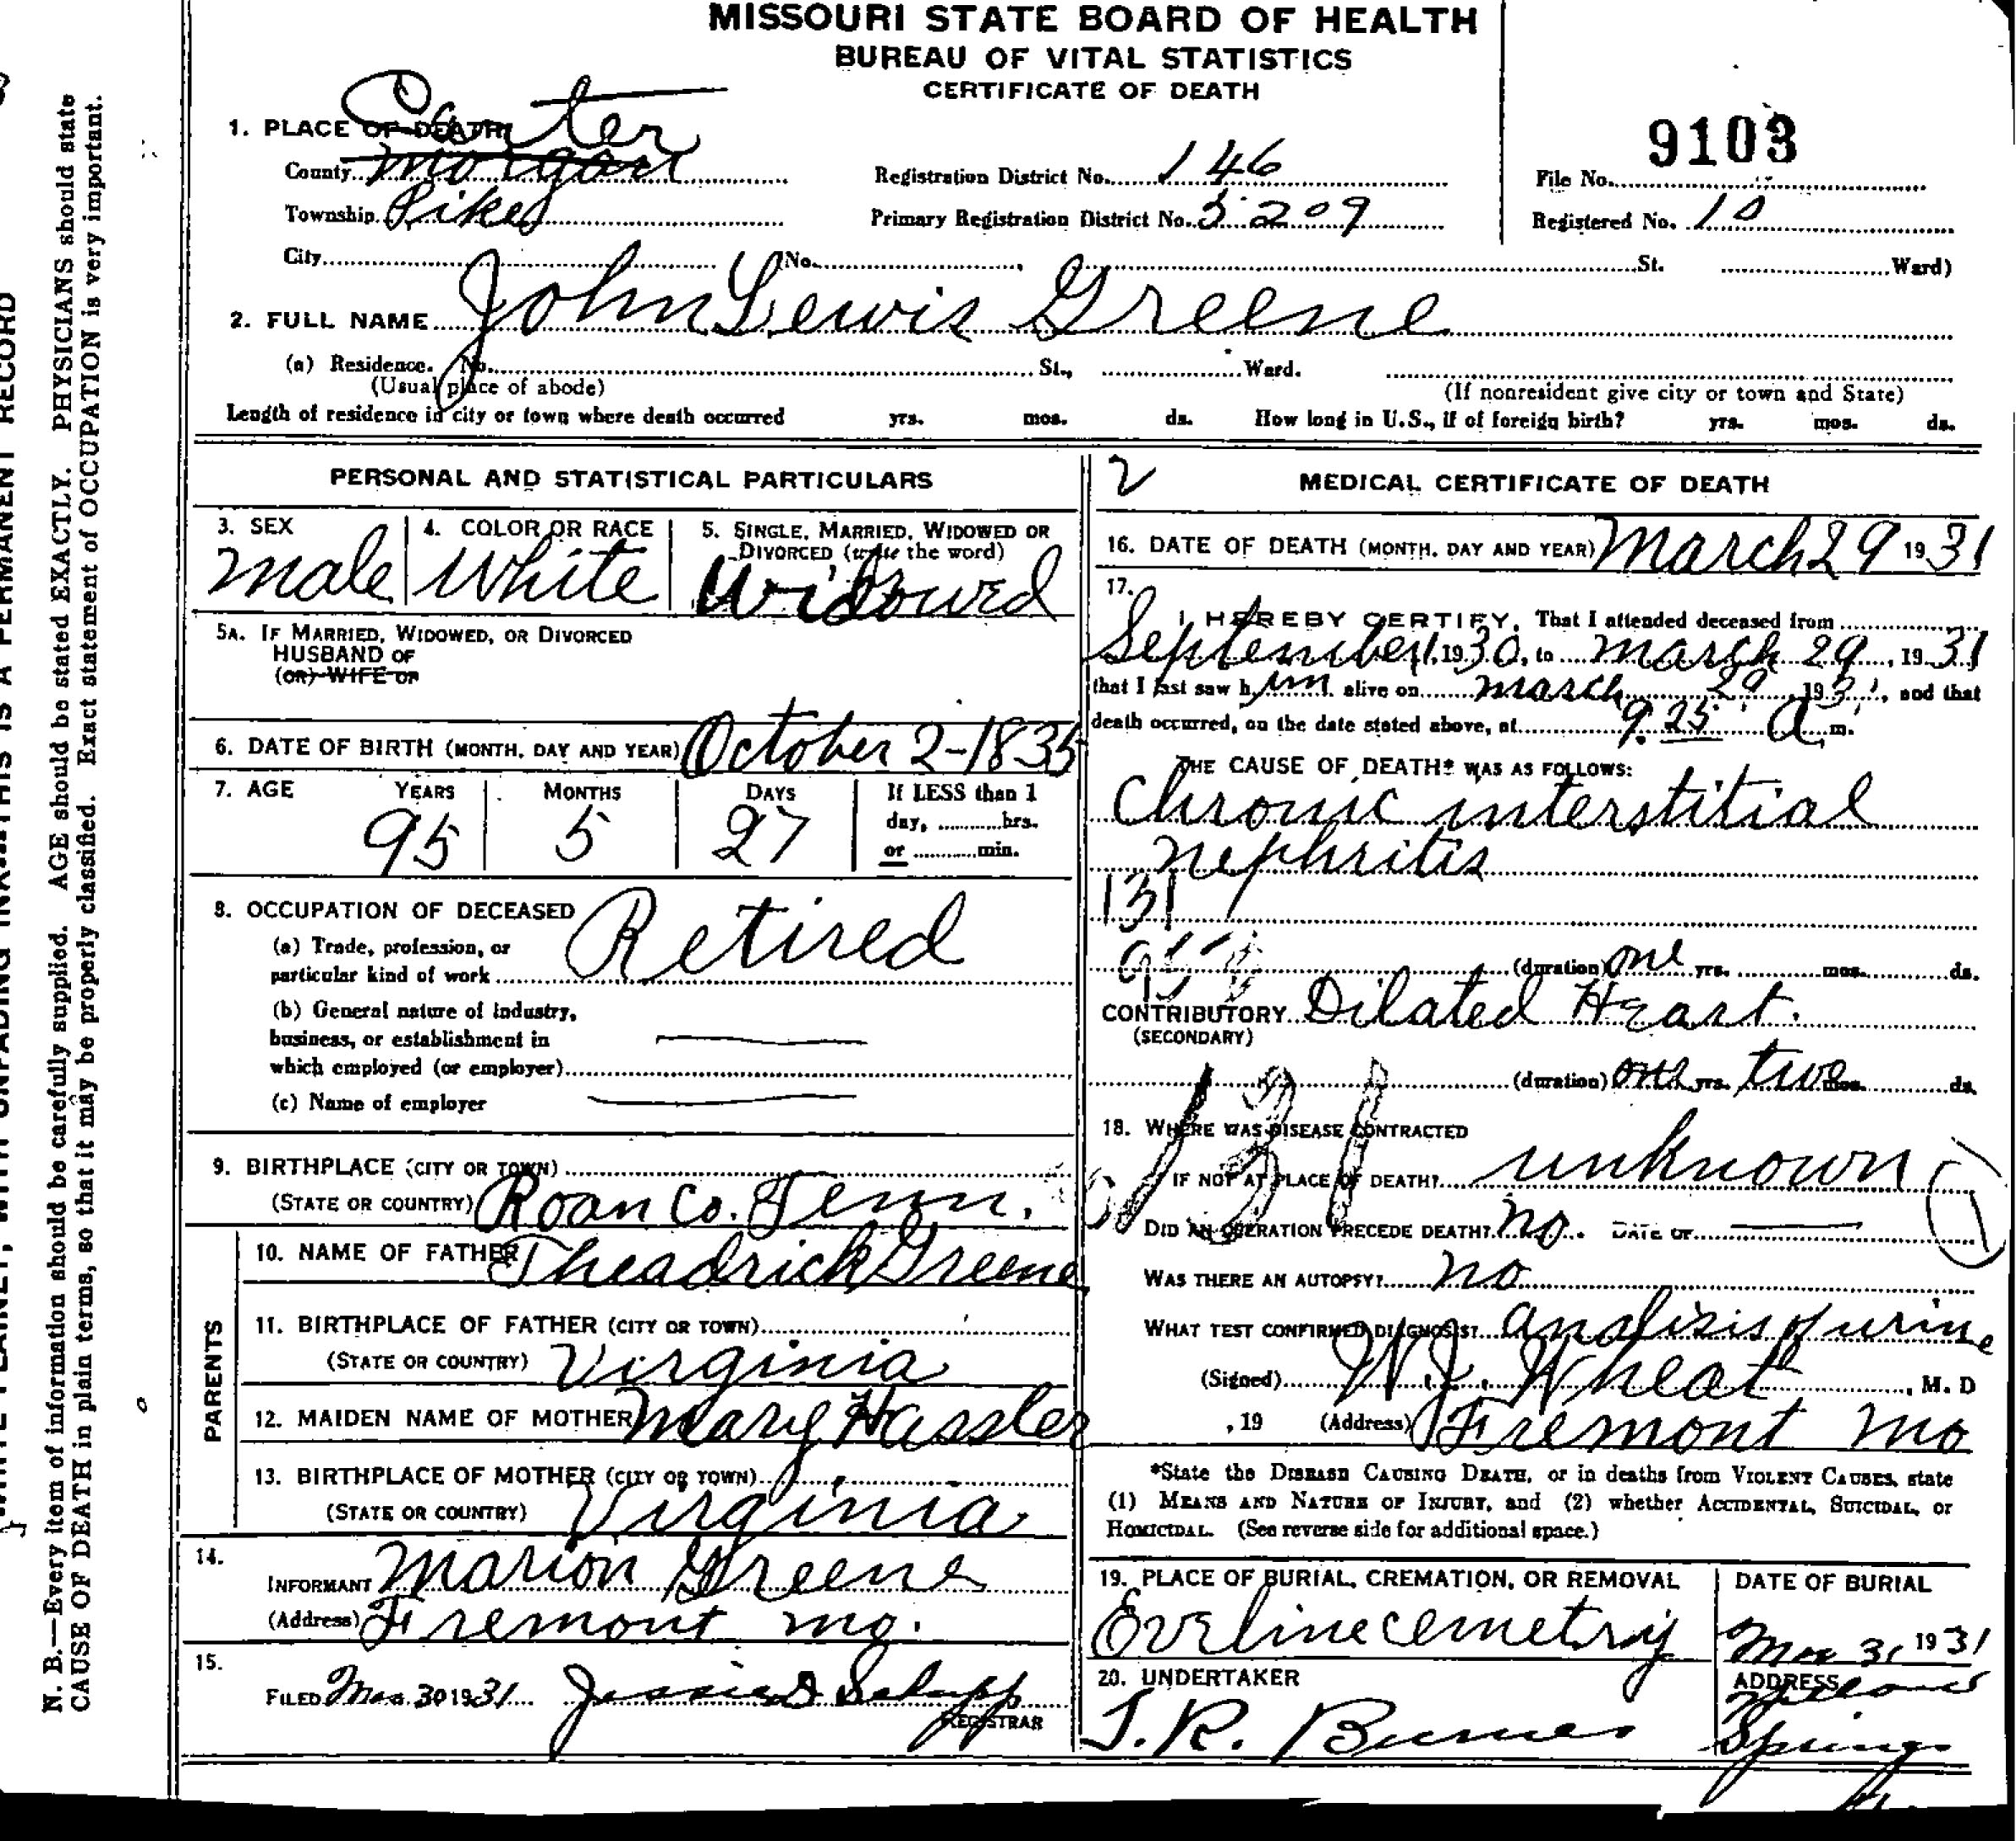 MISSOURI STATE BOARD OF HEALTH
BUREAU OF VITAL STATISTICS
CERTIFICATE OF DEATH
1. PLACE OF DEATH
Carter
County Morgan
Township Pike
City No. St. Ward)
Registration District No. 146
Primary Registration District No. 5209
9103
File No.
Registered No. 10
2. FULL NAME John Lewis Greene
(a) Residence. No. St., Ward.
(Usual place of abode) (If nonresident give city or town and State)
Length of residence in city or town where death occurred yrs. mos. ds. How long in U.S., if of foreign birth? yrs. mos. ds.
PERSONAL AND STATISTICAL PARTICULARS
3. SEX
male
4. COLOR OR RACE
White
5. SINGLE, MARRIED, WIDOWED OR
DIVORCED (write the word)
Widowed
5A. IF MARRIED, WIDOWED, OR DIVORCED
HUSBAND OF
(OR) WIFE OF
6. DATE OF BIRTH (MONTH, DAY AND YEAR) October 2-1835
7. AGE YEARS MONTHS DAYS If LESS than 1
day, hrs.
or min.
95 5 27
8. OCCUPATION OF DECEASED
(a) Trade, profession, or
particular kind of work Retired
(b) General nature of industry,
business, or establishment in
which employed (or employer)
(c) Name of employer
9. BIRTHPLACE (CITY OR TOWN)
(STATE OR COUNTRY) Roan Co. Tenn.
PARENTS
10. NAME OF FATHER Theadrick Greene
11. BIRTHPLACE OF FATHER (CITY OR TOWN)
(STATE OR COUNTRY) Virginia
12. MAIDEN NAME OF MOTHER Mary Hassler
13. BIRTHPLACE OF MOTHER (CITY OR TOWN)
(STATE OR COUNTRY) Virginia
14.
INFORMANT Marion Greene
(Address) Fremont Mo.
15.
FILED Mar. 30 1931 Jessie
REGISTRAR
2
MEDICAL CERTIFICATE OF DEATH
16. DATE OF DEATH (MONTH, DAY AND YEAR) March 29 1931
17.
I HEREBY CERTIFY, That I attended deceased from
September 1, 1930, to March 29, 1931
that I last saw him alive on March 29, 1931, and that
death occurred, on the date stated above, at 9.25 A m.
THE CAUSE OF DEATH* WAS AS FOLLOWS:
Chronic interstitial
nephritis
131
(duration) one yrs. mos. ds.
CONTRIBUTORY Dilated Heart.
(SECONDARY)
(duration) yrs. two mos. ds.
131
18. WHERE WAS DISEASE CONTRACTED
IF NOT AT PLACE OF DEATH? unknown
1
DID AN OPERATION PRECEDE DEATH? no. DATE OF
WAS THERE AN AUTOPSY? no
WHAT TEST CONFIRMED DIAGNOSIS? analizis of urine
(Signed) W.J. Wheat, M. D
, 19 (Address) Fremont Mo
*State the DISEASE CAUSING DEATH, or in deaths from VIOLENT CAUSES, state
(1) MEANS AND NATURE OF INJURY, and (2) whether ACCIDENTAL, SUICIDAL, or
HOMICIDAL. (See reverse side for additional space.)
19. PLACE OF BURIAL, CREMATION, OR REMOVAL
Eveline cemetry
DATE OF BURIAL
Mar 31 1931
20. UNDERTAKER
J. R. Burnes
ADDRESS
Willow
Springs
N. B.—Every item of information should be carefully supplied. AGE should be stated EXACTLY. PHYSICIANS should state
CAUSE OF DEATH in plain terms, so that it may be properly classified. Exact statement of OCCUPATION is very important.